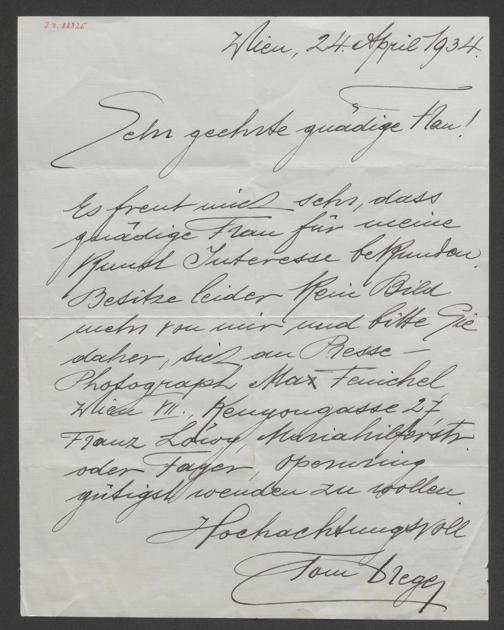 Wien, 24. April 1934.
Sehr geehrte gnädige Frau!
Es freut mich sehr, dass
gnädige Frau für meine
Kunst Interesse bekunden.
Besitze leider kein Bild
mehr von mir und bitte Sie
daher, sich an Presse-
Photograph Max Fenichel
Wien VII., Kenyongasse 27,
Franz Löwy, Mariahilferstr.
oder Fayer, Opernring
gütigst wenden zu wollen.
Hochachtungsvoll